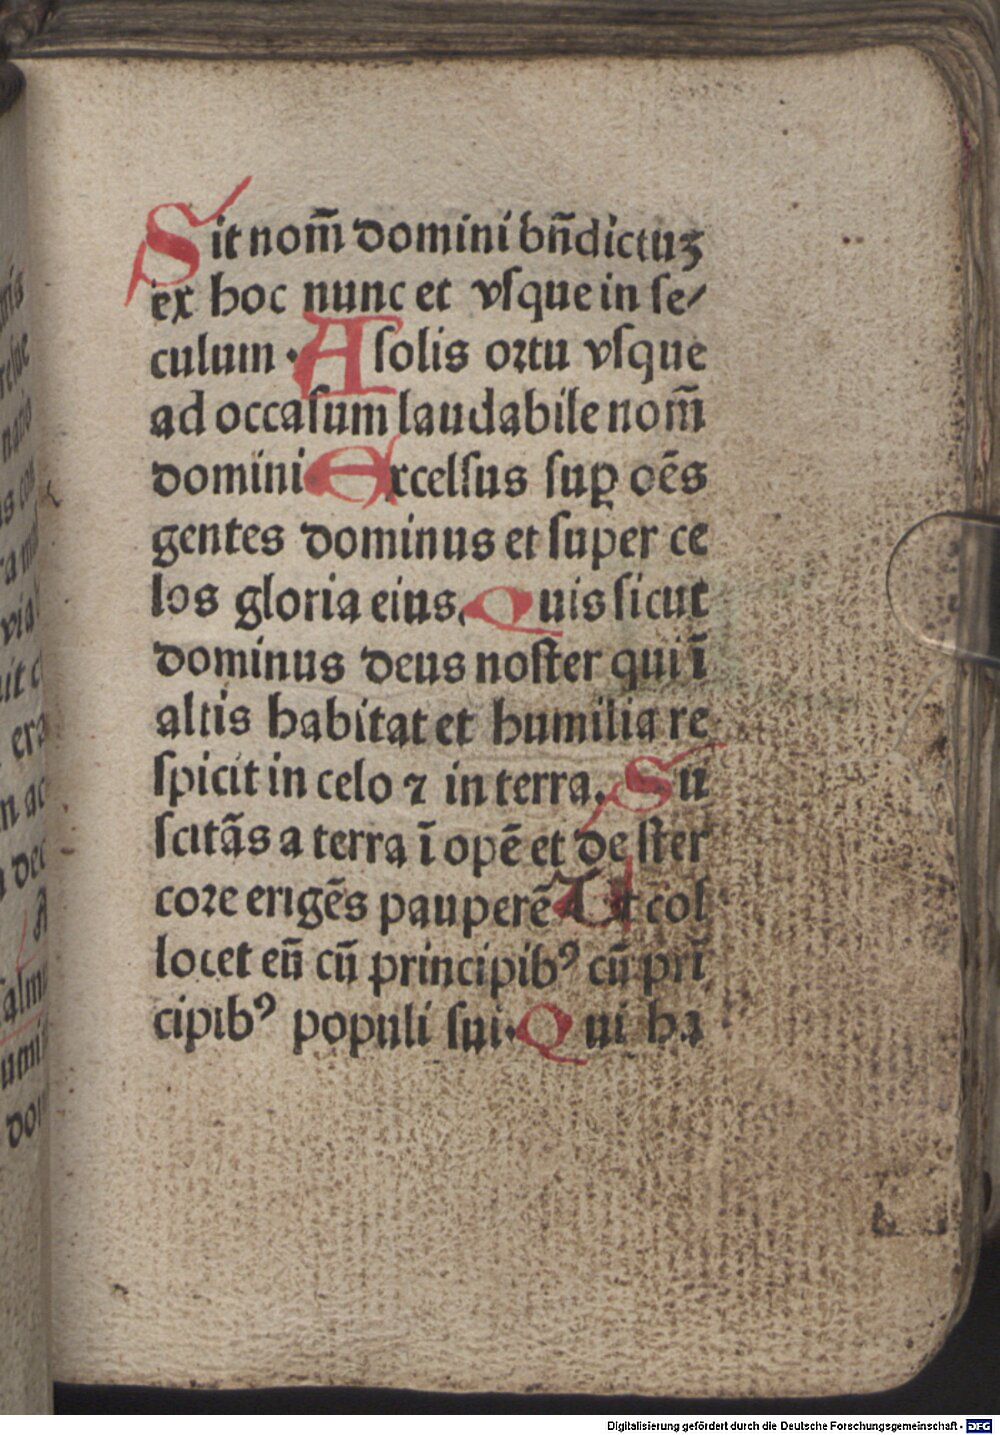 Sit nom̄ domini bn̄dictuʒ
ex hoc nunc et vſque in ſe⸗
culum · A ſolis oꝛtu vſque
ad occaſum laudabile nom̄
domini Excelſus ſuꝑ oēs
gentes dominus et ſuper ce
los gloria eius. Quis ſicut
dominus deus noſter qui ī
altis habitat et humilia re
ſpicit in celo ⁊ in terra. Su
ſcitās a terra ī opē et de ſter
coꝛe erigēs pauperē Ut col
locet eū cū principibꝰ cū prī
cipibꝰ populi ſui· Qui ha
Digitalisierung gefördert durch die Deutsche Forschungsgemeinschaft - DFG